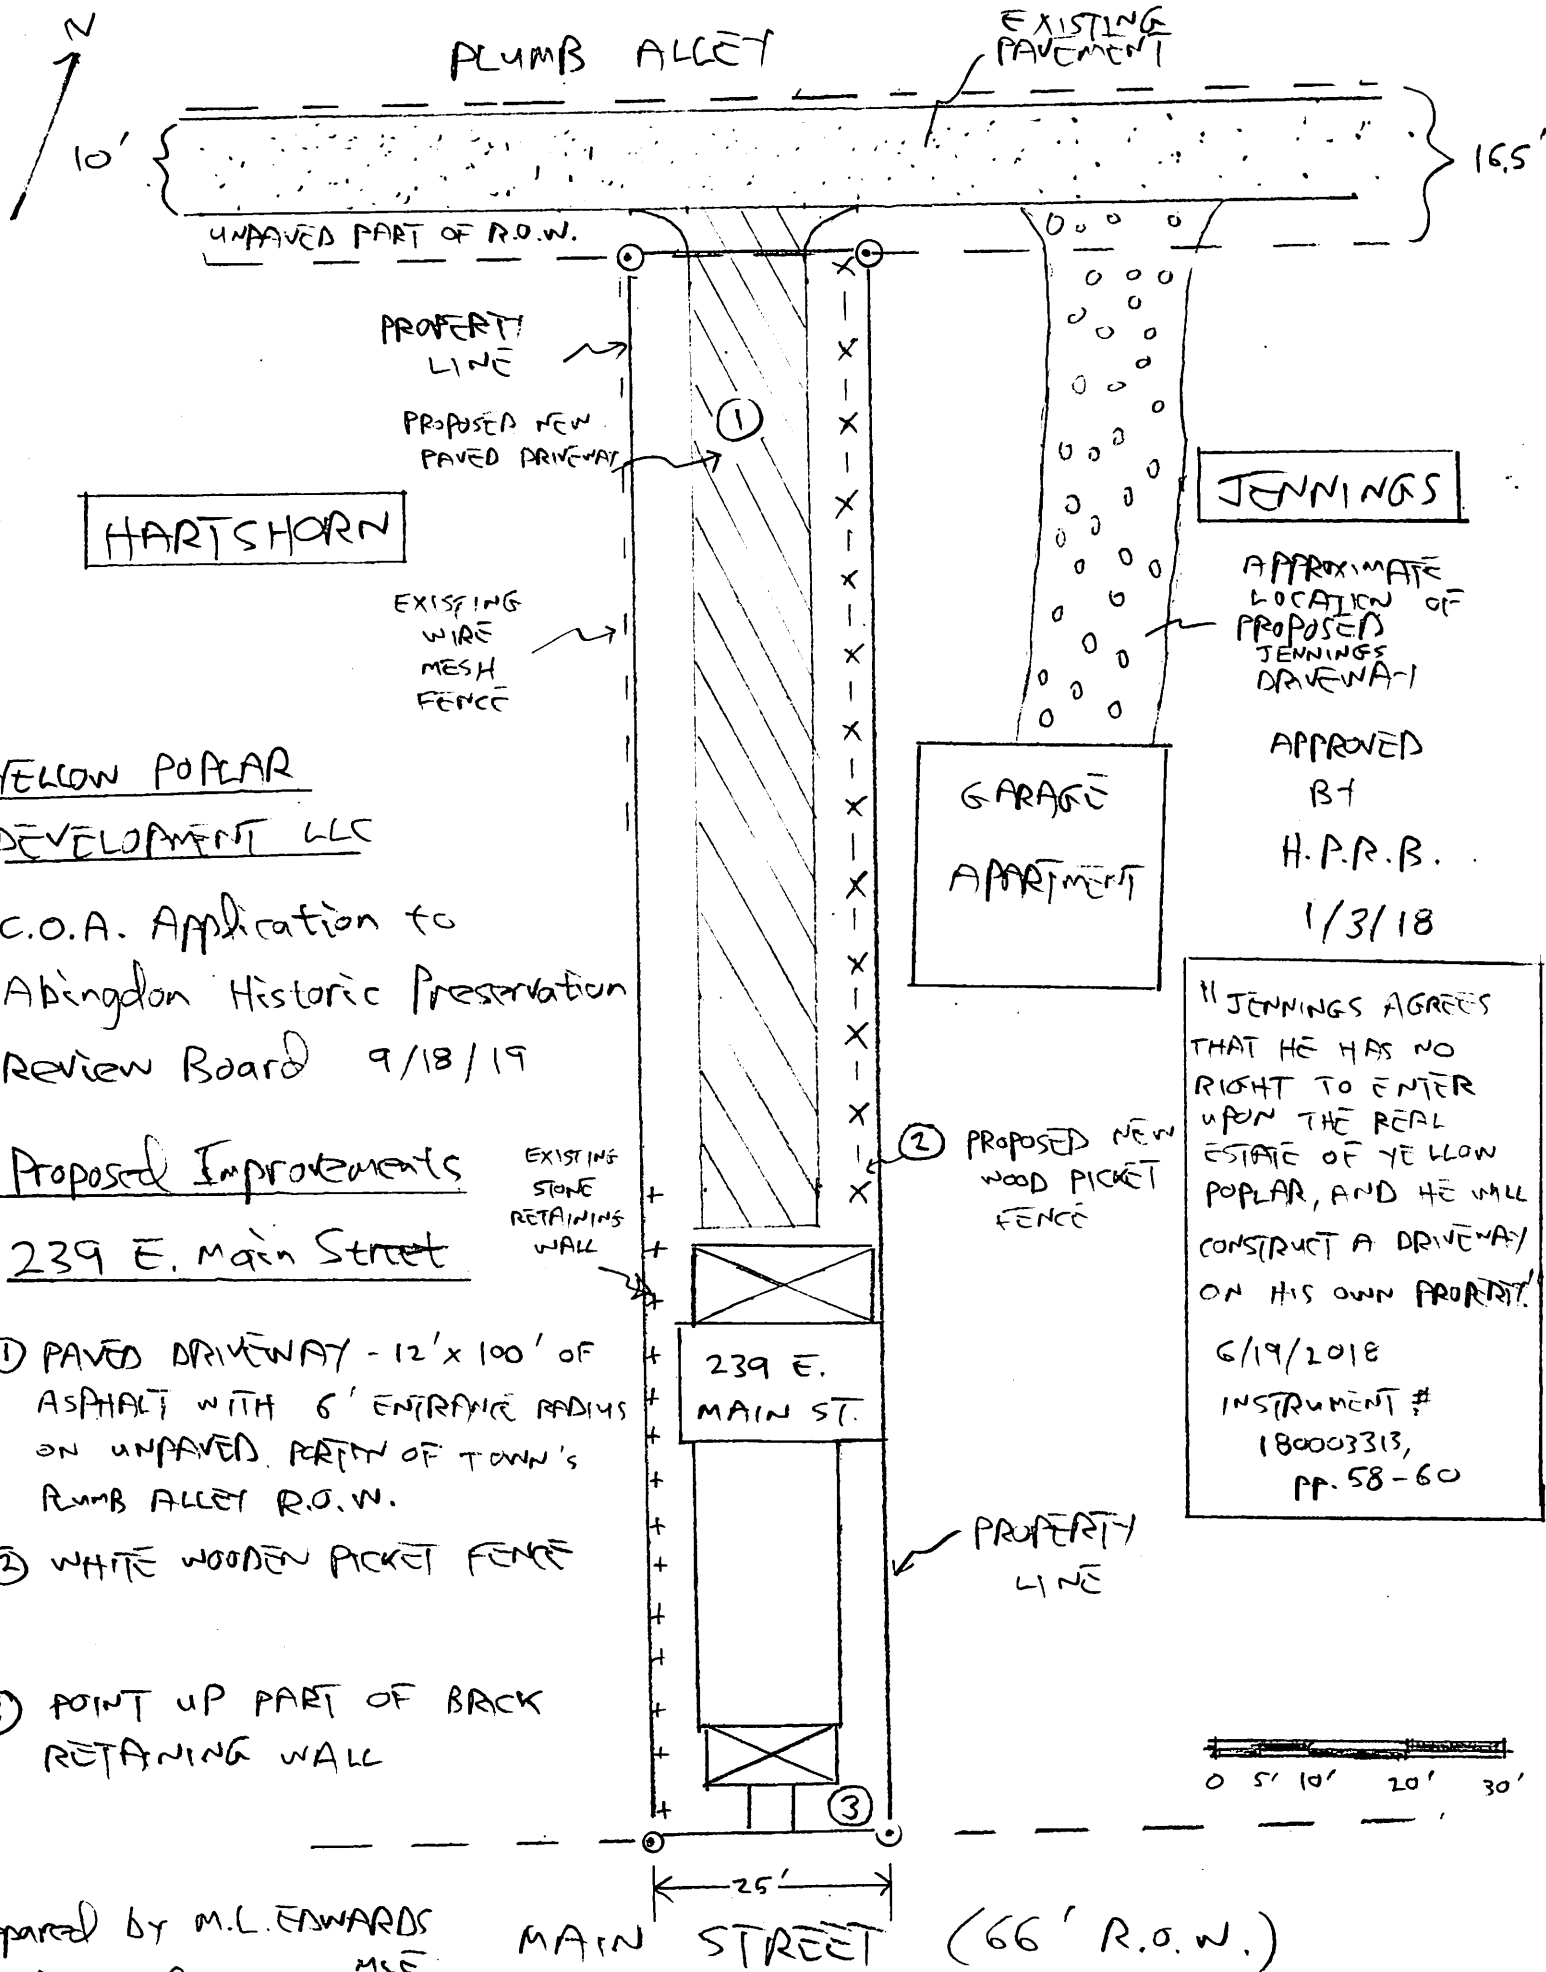 N
PLUMB ALLEY
EXISTING
PAVEMENT
10'
16.5'
UNPAVED PART OF R.O.W.
PROPERTY
LINE
PROPOSED NEW
PAVED DRIVEWAY
①
HARTSHORN
JENNINGS
EXISTING
WIRE
MESH
FENCE
APPROXIMATE
LOCATION OF
PROPOSED
JENNINGS
DRIVEWAY
APPROVED
BY
H.P.R.B.
1/3/18
GARAGE
APARTMENT
YELLOW POPLAR
DEVELOPMENT LLC
C.O.A. Application to
Abingdon Historic Preservation
Review Board 9/18/19
Proposed Improvements
239 E. Main Street
EXISTING
STONE
RETAINING
WALL
② PROPOSED NEW
WOOD PICKET
FENCE
"JENNINGS AGREES
THAT HE HAS NO
RIGHT TO ENTER
UPON THE REAL
ESTATE OF YELLOW
POPLAR, AND HE WILL
CONSTRUCT A DRIVEWAY
ON HIS OWN PROPERTY."
6/19/2018
INSTRUMENT #
180003313,
PP. 58-60
① PAVED DRIVEWAY - 12' x 100' OF
ASPHALT WITH 6' ENTRANCE RADIUS
ON UNPAVED PORTION OF TOWN'S
PLUMB ALLEY R.O.W.
② WHITE WOODEN PICKET FENCE
③ POINT UP PART OF BRICK
RETAINING WALL
239 E.
MAIN ST.
PROPERTY
LINE
③
0 5' 10' 20' 30'
25'
MAIN STREET (66' R.O.W.)
pared by M.L. EDWARDS